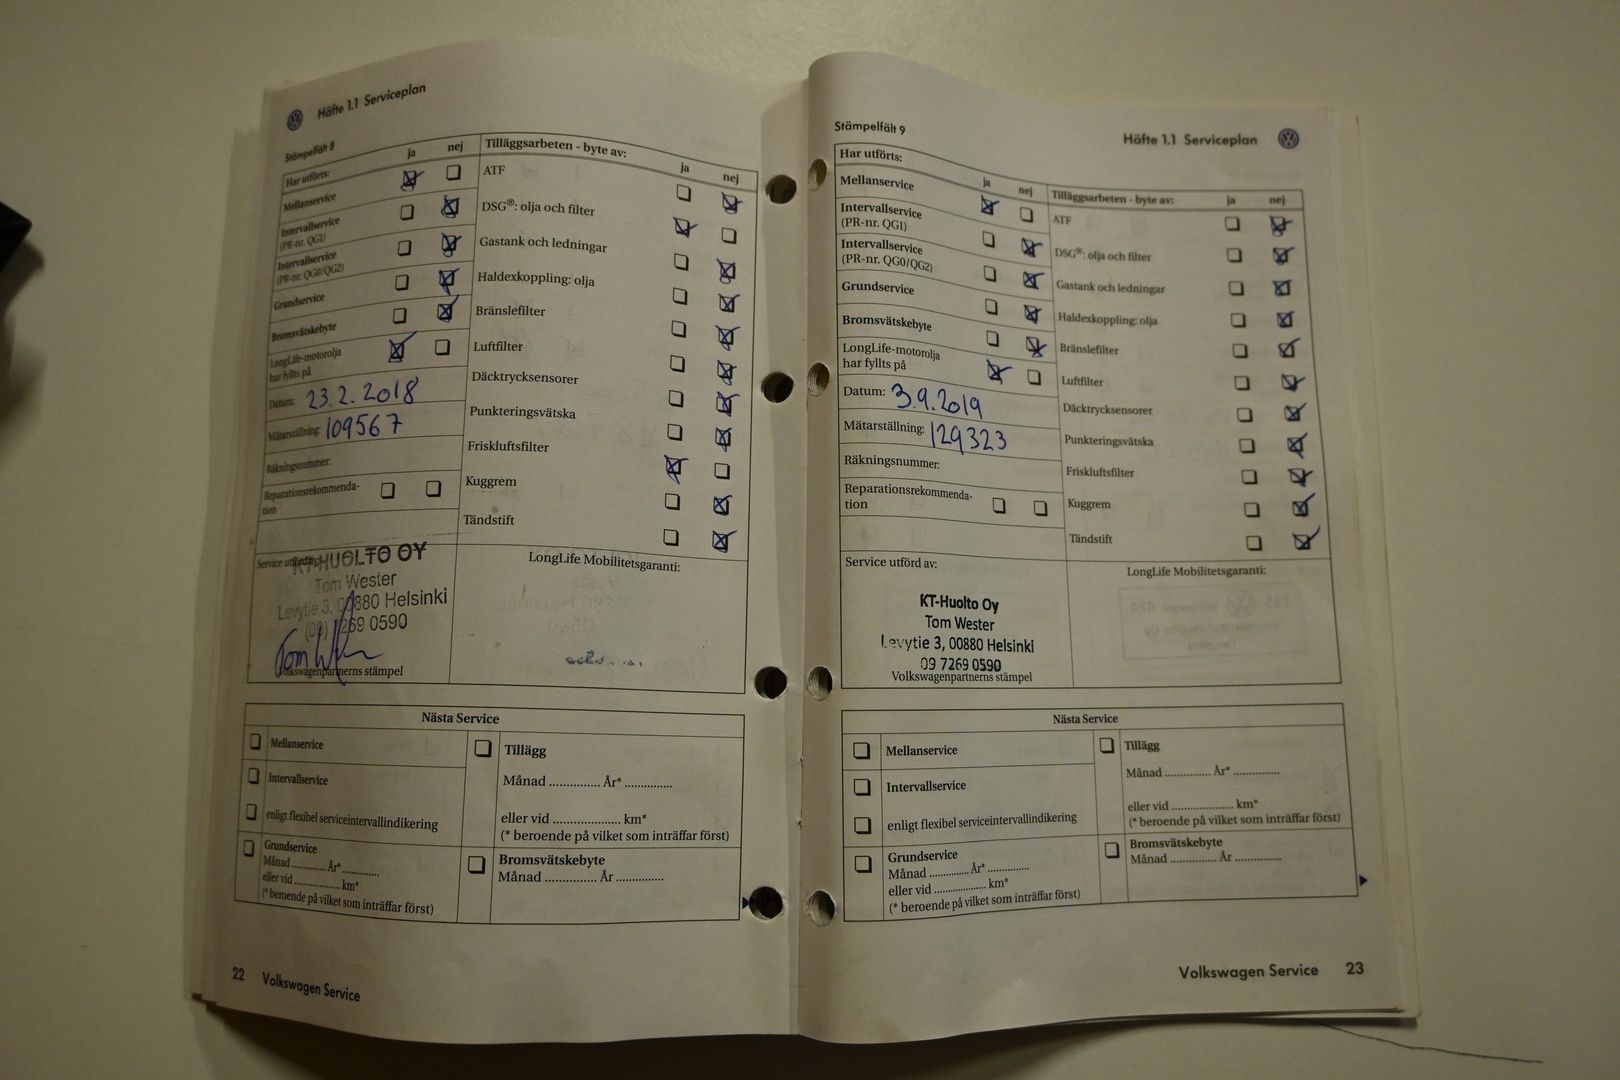 Häfte 1.1 Serviceplan
Stämpelfält 8
Har utförts:
ja nej
Mellanservice
Intervallservice
(PR-nr. QG1)
Intervallservice
(PR-nr. QG0/QG2)
Grundservice
Bromsvätskebyte
LongLife-motorolja
har fyllts på
Datum: 23.2.2018
Mätarställning: 109567
Räkningsnummer:
Reparationsrekommenda-
tion
Tilläggsarbeten - byte av:
ja nej
ATF
DSG®: olja och filter
Gastank och ledningar
Haldexkoppling: olja
Bränslefilter
Luftfilter
Däcktrycksensorer
Punkteringsvätska
Friskluftsfilter
Kuggrem
Tändstift
Service utförd av:
KT-HUOLTO OY
Tom Wester
Levytie 3, 00880 Helsinki
(09) 7269 0590
Volkswagenpartnerns stämpel
LongLife Mobilitetsgaranti:
Nästa Service
Mellanservice
Intervallservice
enligt flexibel serviceintervallindikering
Grundservice
Månad ............ År* ............
eller vid ............... km*
(* beroende på vilket som inträffar först)
Tillägg
Månad ............ År* ............
eller vid .................... km*
(* beroende på vilket som inträffar först)
Bromsvätskebyte
Månad ............ År ............
22 Volkswagen Service
Stämpelfält 9
Häfte 1.1 Serviceplan
Har utförts:
ja nej
Mellanservice
Intervallservice
(PR-nr. QG1)
Intervallservice
(PR-nr. QG0/QG2)
Grundservice
Bromsvätskebyte
LongLife-motorolja
har fyllts på
Datum: 3.9.2019
Mätarställning: 129323
Räkningsnummer:
Reparationsrekommenda-
tion
Tilläggsarbeten - byte av:
ja nej
ATF
DSG®: olja och filter
Gastank och ledningar
Haldexkoppling: olja
Bränslefilter
Luftfilter
Däcktrycksensorer
Punkteringsvätska
Friskluftsfilter
Kuggrem
Tändstift
Service utförd av:
KT-Huolto Oy
Tom Wester
Levytie 3, 00880 Helsinki
09 7269 0590
Volkswagenpartnerns stämpel
LongLife Mobilitetsgaranti:
Nästa Service
Mellanservice
Intervallservice
enligt flexibel serviceintervallindikering
Grundservice
Månad ............ År* ............
eller vid .................... km*
(* beroende på vilket som inträffar först)
Tillägg
Månad ............ År* ............
eller vid .................... km*
(* beroende på vilket som inträffar först)
Bromsvätskebyte
Månad ............ År ............
Volkswagen Service 23